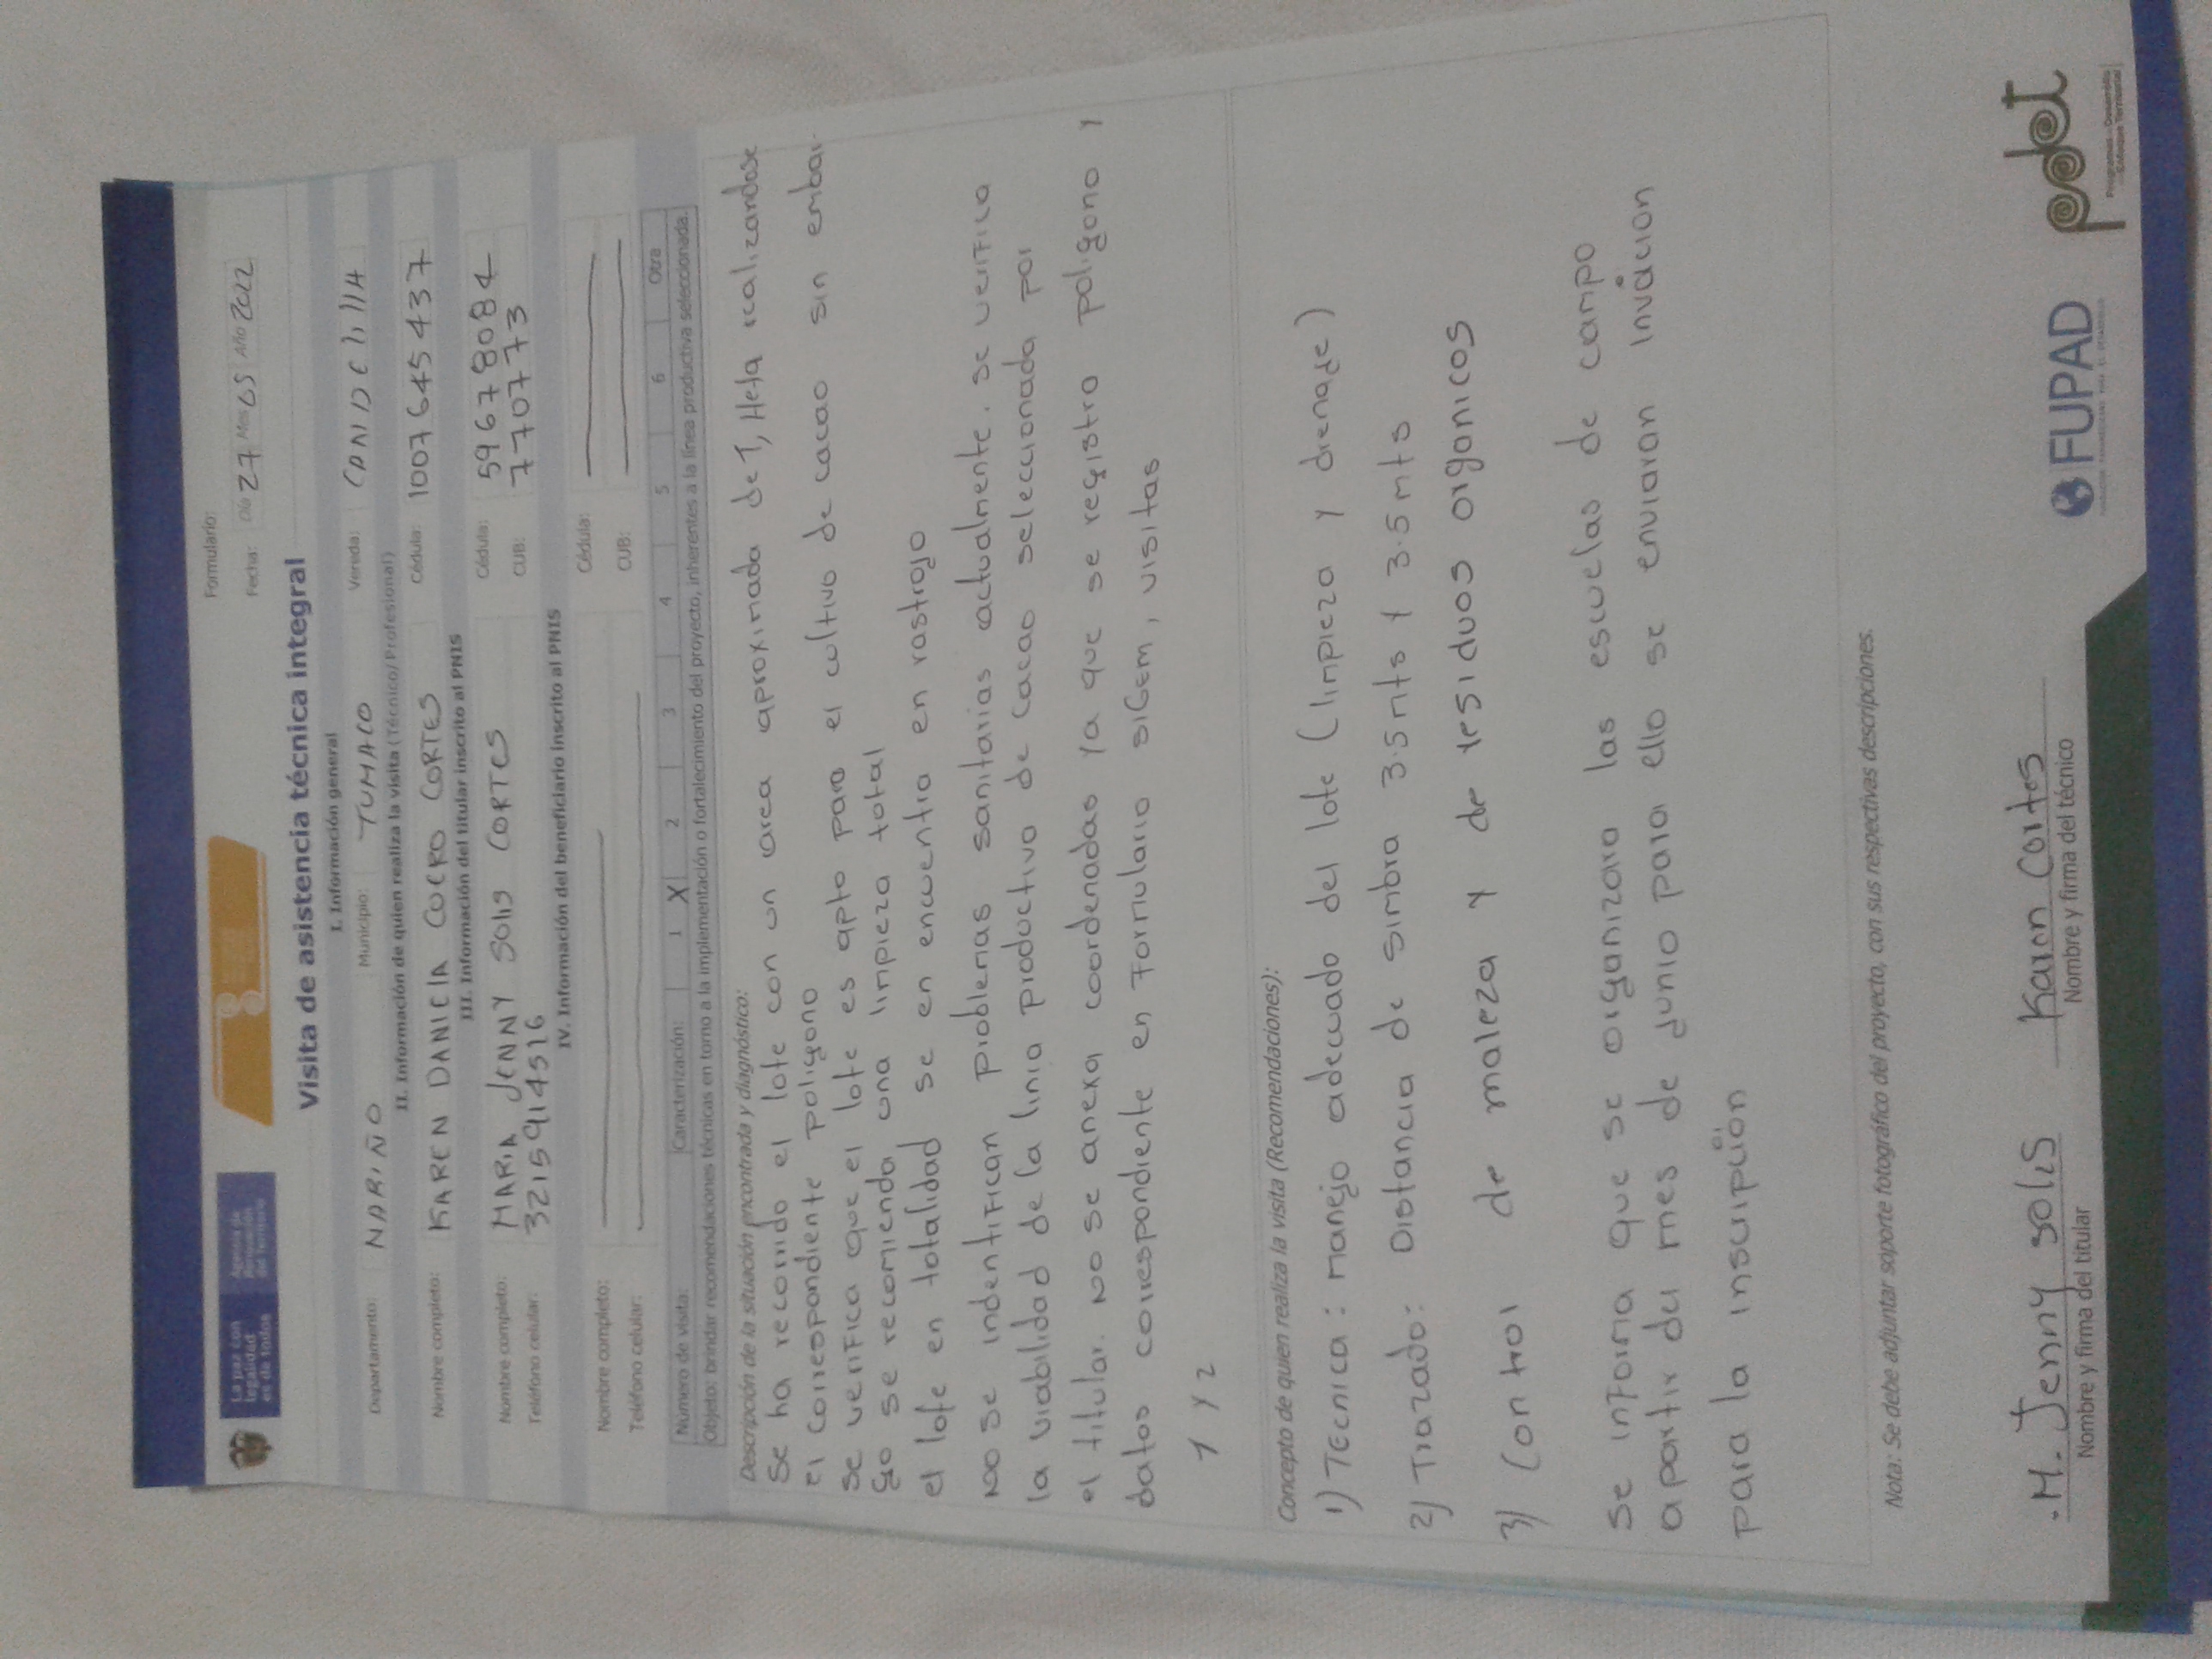 La paz con
legalidad
es de todos
Agencia de
Renovación
del Territorio
Formulario:
Fecha: Día 27 Mes 05 Año 2022
Visita de asistencia técnica integral
I. Información general
Departamento: NARIÑO Municipio: TUMACO Vereda: CANDELILLA
II. Información de quien realiza la visita (Técnico/Profesional)
Nombre completo: KAREN DANIELA COERO CORTES Cédula: 1007645437
III. Información del titular inscrito al PNIS
Nombre completo: MARIA JENNY SOLIS CORTES Cédula: 59678084
Teléfono celular: 3215914516 CUB: 7707773
IV. Información del beneficiario inscrito al PNIS
Nombre completo: Cédula:
Teléfono celular: CUB:
Número de visita: Caracterización: 1 X 2 3 4 5 6 Otra
Objeto: brindar recomendaciones técnicas en torno a la implementación o fortalecimiento del proyecto, inherentes a la línea productiva seleccionada.
Descripción de la situación encontrada y diagnóstico:
Se ha recorrido el lote con un area aproximada de 1, Heta realizandose
el correspondiente poligono
se verifica que el lote es apto para el cultivo de cacao sin embar-
go se recomienda una limpieza total
el lote en totalidad se en encuentra en rastrojo
No se indentifican problemas sanitarias actualmente. se verifica
la viabilidad de la linia productivo de cacao seleccionada por
el titular. No se anexa coordenadas ya que se registro poligono y
datos correspondiente en Formulario SIGEM, visitas
1 y 2
Concepto de quien realiza la visita (Recomendaciones):
1) Tecnica: manejo adecuado del lote (limpieza y drenaje)
2) Trazado: Distancia de simbra 3.5mts y 3.5mts
3) Control de maleza y de residuos organicos
se informa que se organizara las escuelas de campo
apartir del mes de junio para ello se enviaran invacion
para la inscripción
Nota: Se debe adjuntar soporte fotográfico del proyecto, con sus respectivas descripciones.
M. Jenny solis Karen Cortes
Nombre y firma del titular Nombre y firma del técnico
FUPAD
pdet